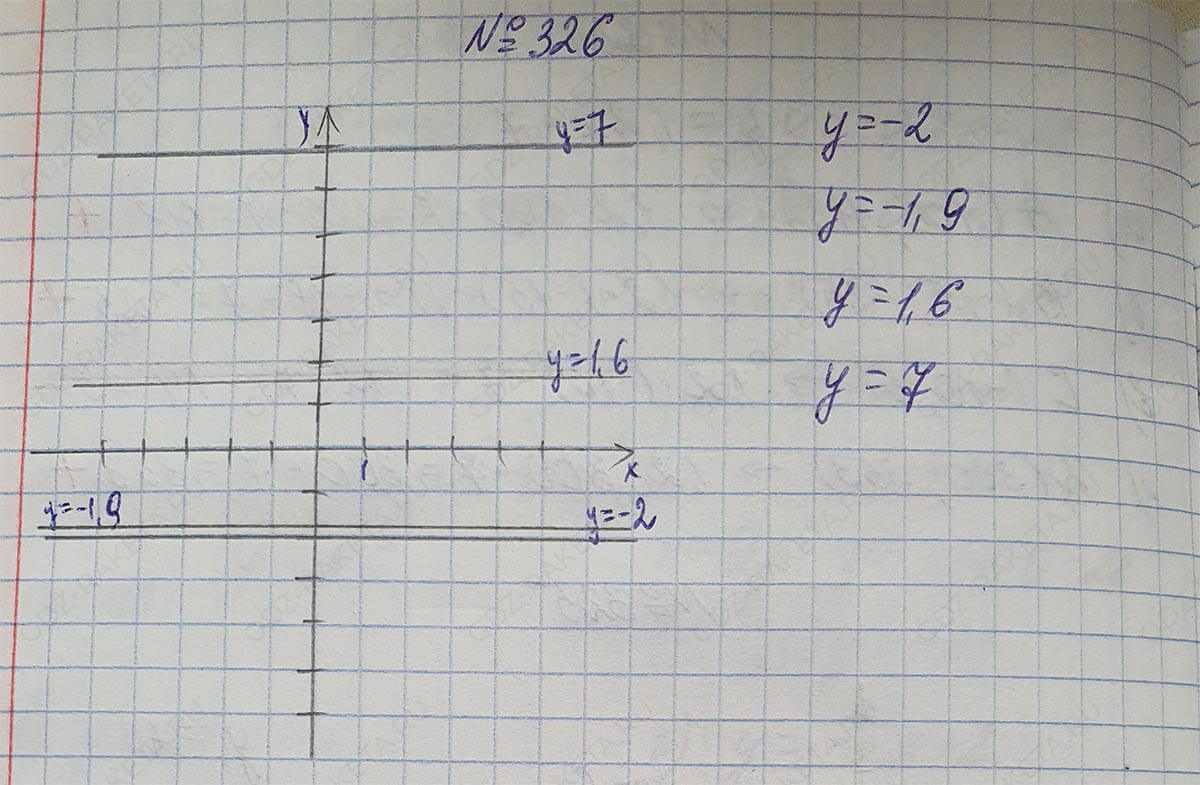 № 326
y
y=7
y=1,6
1
x
y=-1,9
y=-2
y=-2
y=-1,9
y=1,6
y=7